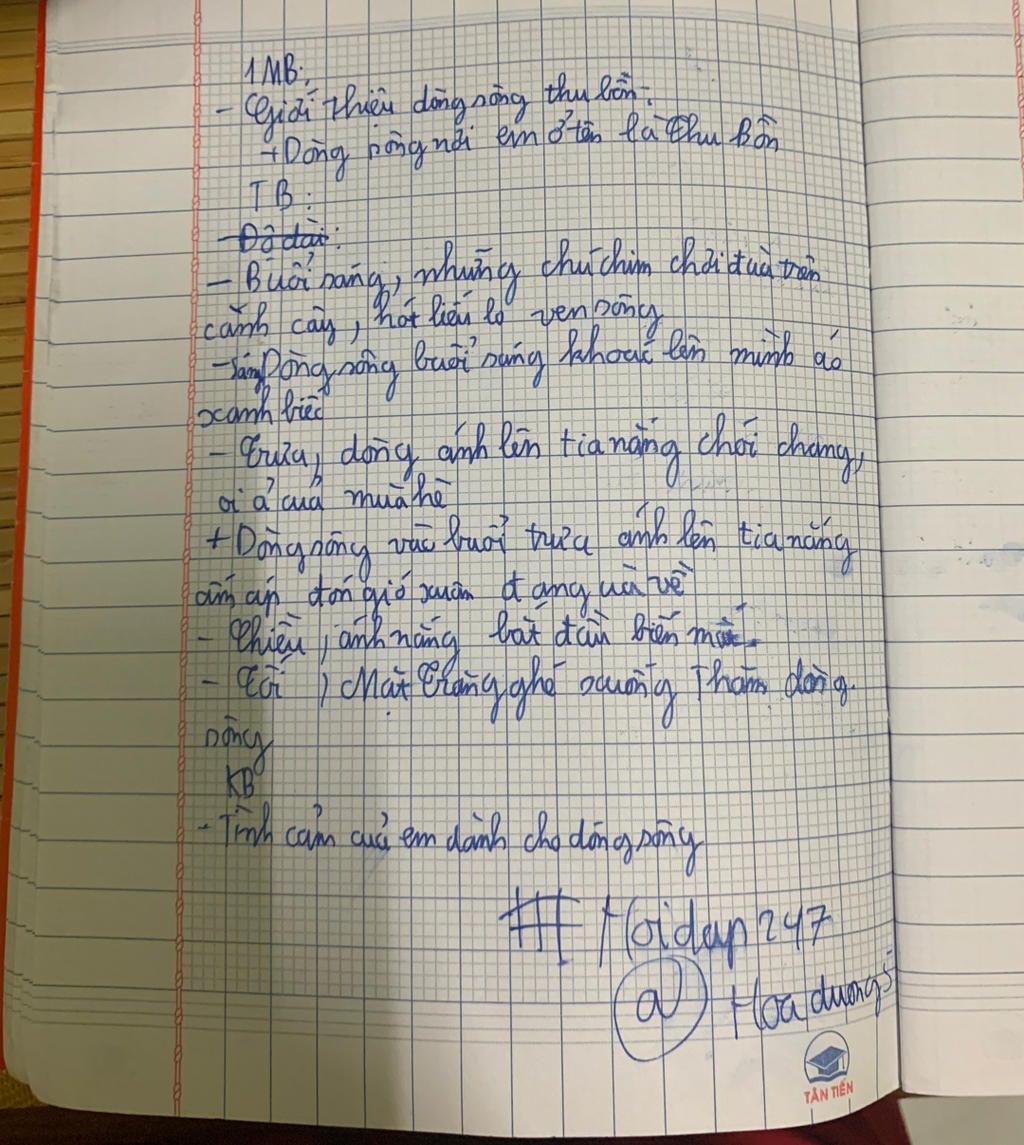 1 MB:
- Giới thiệu dòng sông thu bồn:
+ Dòng sông nơi em ở tên là Thu Bồn
TB:
- Độ dài:
- Buổi sáng, những chú chim chơi đùa trên
cành cây, hót líu lo ven sông
- Dòng sông buổi sáng khoác lên mình áo
xanh biếc
- Trưa, dòng ánh lên tia nắng chói chang,
oi ả của mùa hè
+ Dòng sông vào buổi trưa ánh lên tia nắng
ấm áp đón gió xuân đang ùa về
- Chiều, ánh nắng bắt đầu biến mất.
- Tối, Mặt Trăng ghé xuống Thăm dòng
sông
KB
- Tình cảm của em dành cho dòng sông
# Hoidap247
@ Hoaduong5
TÂN TIẾN